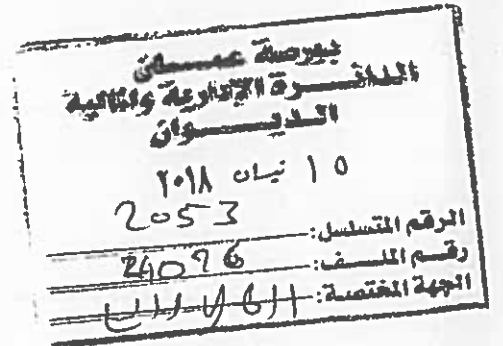 بورصة عمـــــان
الدائـــرة الإدارية والمالية
الديـــــوان
١٥ نيسان ٢٠١٨
الرقم المتسلسل: 2053
رقم الملـــف:
الجهة المختصة: